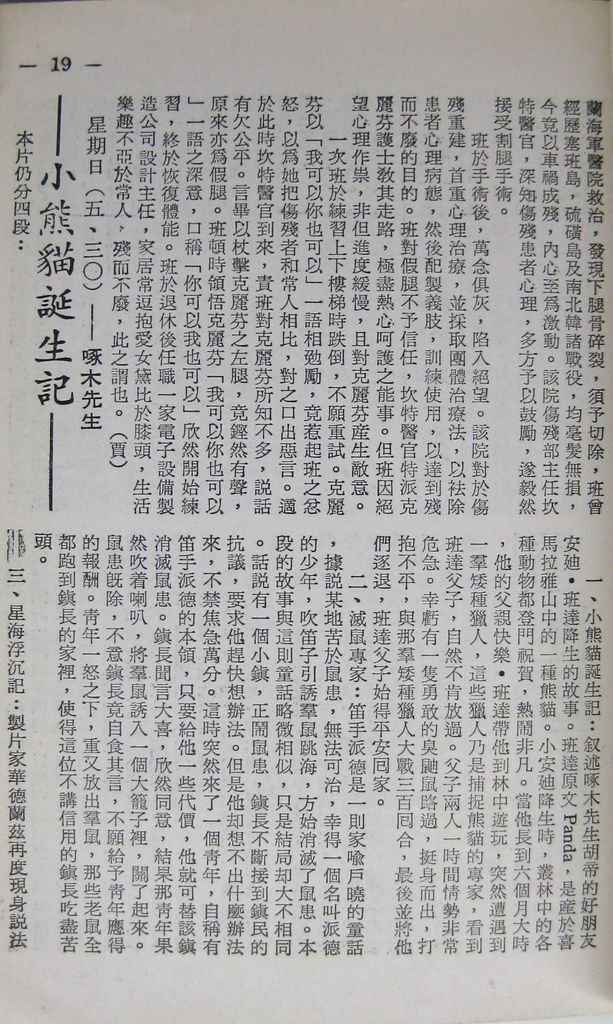 — 19 —
蘭海軍醫院救治，發現下腿骨碎裂，須予切除，班曾
經歷塞班島，硫磺島及南北韓諸戰役，均毫髮無損，
今竟以車禍成殘，內心至爲激動。該院傷殘部主任坎
特醫官，深知傷殘患者心理，多方予以鼓勵，遂毅然
接受割腿手術。
班於手術後，萬念俱灰，陷入絕望。該院對於傷
殘重建，首重心理治療，並採取團體治療法，以袪除
患者心理病態，然後配製義肢，訓練使用，以達到殘
而不廢的目的。班對假腿不予信任，坎特醫官特派克
麗芬護士敎其走路，極盡熱心呵護之能事。但班因絕
望心理作祟，非但進度緩慢，且對克麗芬産生敵意。
一次班於練習上下樓梯時跌倒，不願重試。克麗
芬以「我可以你也可以」一語相勉勵，竟惹起班之忿
怒，以爲她把傷殘者和常人相比，對之口出惡言。適
於此時坎特醫官到來，責班對克麗芬所知不多，説話
有欠公平。言畢以杖擊克麗芬之左腿，竟鏗然有聲，
原來亦爲假腿。班頓時領悟克麗芬「我可以你也可以
」一語之深意，口稱「你可以我也可以」欣然開始練
習，終於恢復體能。班於退休後任職一家電子設備製
造公司設計主任，家居常逗抱愛女黛比於膝頭，生活
樂趣不亞於常人，殘而不廢，此之謂也。（賈）
星期日（五、三〇）——啄木先生
——小熊貓誕生記——
本片仍分四段：
一、小熊貓誕生記：叙述啄木先生胡帝的好朋友
安廸•班達降生的故事。班達原文 Panda，是産於喜
馬拉雅山中的一種熊貓。小安廸降生時，叢林中的各
種動物都登門祝賀，熱鬧非凡。當他長到六個月大時
，他的父親快樂•班達帶他到林中遊玩，突然遭遇到
一羣矮種獵人，這些獵人乃是捕捉熊貓的專家，看到
班達父子，自然不肯放過。父子兩人一時間情勢非常
危急。幸虧有一隻勇敢的臭鼬鼠路過，挺身而出，打
抱不平，與那羣矮種獵人大戰三百回合，最後並將他
們逐退，班達父子始得平安囘家。
二、滅鼠專家：笛手派德是一則家喩戶曉的童話
，據説某地苦於鼠患，無法可治，幸得一個名叫派德
的少年，吹笛子引誘羣鼠跳海，方始消滅了鼠患。本
段的故事與這則童話略微相似，只是結局却大不相同
。話説有一個小鎭，正鬧鼠患，鎭長不斷接到鎭民的
抗議，要求他趕快想辦法。但是他却想不出什麼辦法
來，不禁焦急萬分。這時突然來了一個靑年，自稱有
笛手派德的本領，只要給他一些代價，他就可替該鎭
消滅鼠患。鎭長聞言大喜，欣然同意，結果那靑年果
然吹着喇叭，將羣鼠誘入一個大籠子裡，關了起來。
鼠患旣除，不意鎭長竟自食其言，不願給予靑年應得
的報酬。靑年一怒之下，重又放出羣鼠，那些老鼠全
都跑到鎭長的家裡，使得這位不講信用的鎭長吃盡苦
頭。
三、星海浮沉記：製片家華德蘭茲再度現身説法